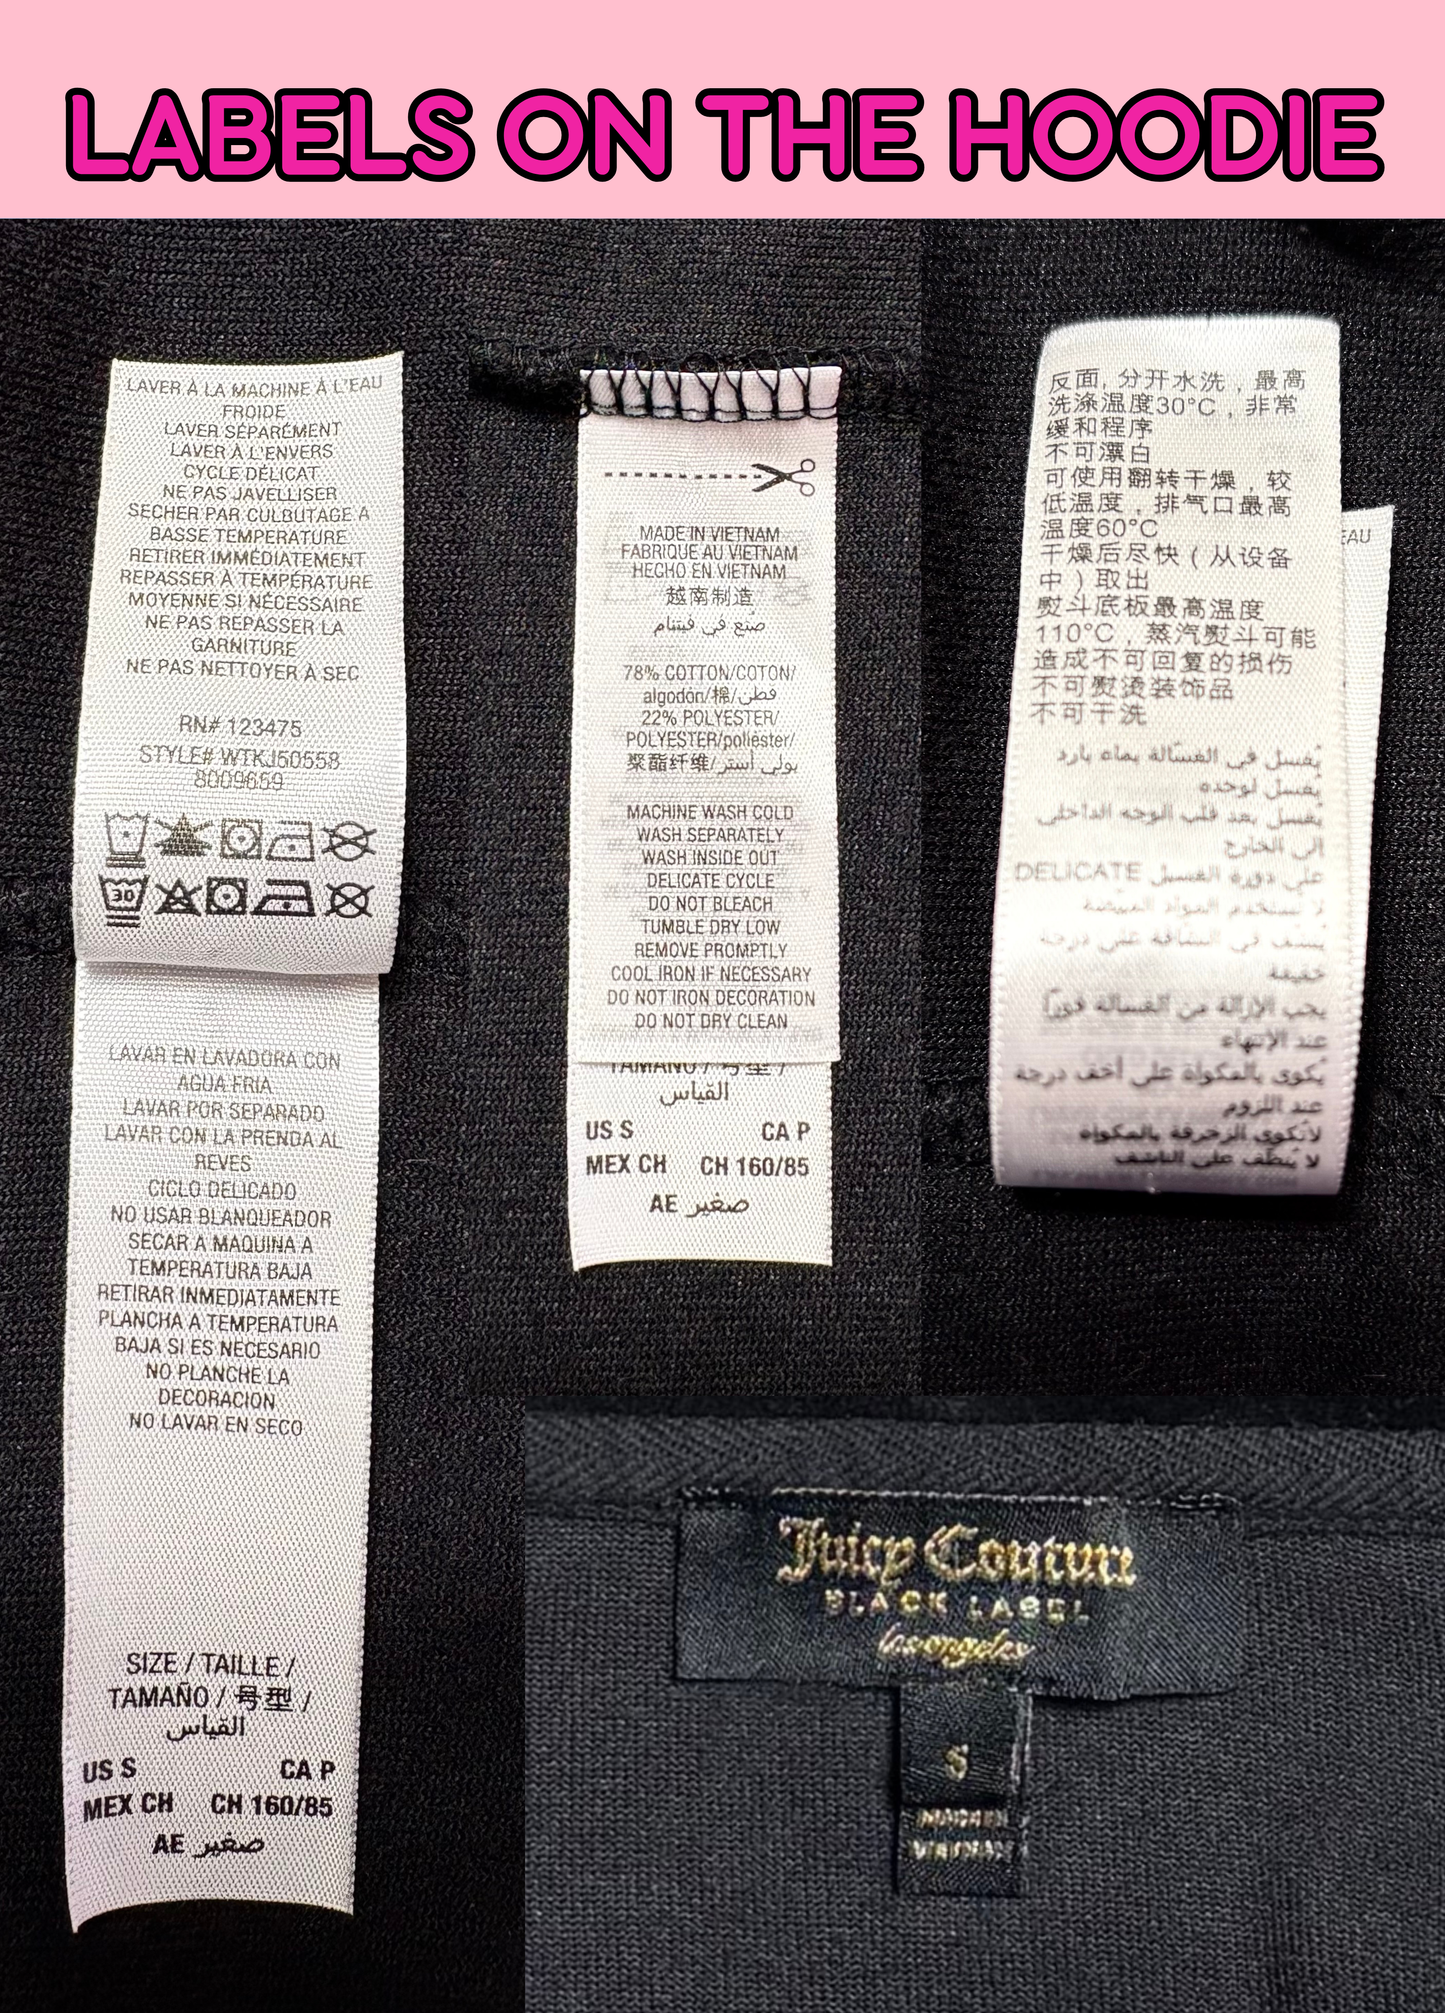 LABELS ON THE HOODIE
LAVER À LA MACHINE À L'EAU
FROIDE
LAVER SÉPARÉMENT
LAVER À L'ENVERS
CYCLE DÉLICAT
NE PAS JAVELLISER
SECHER PAR CULBUTAGE A
BASSE TEMPERATURE
RETIRER IMMÉDIATEMENT
REPASSER À TEMPÉRATURE
MOYENNE SI NÉCESSAIRE
NE PAS REPASSER LA
GARNITURE
NE PAS NETTOYER À SEC
RN# 123475
STYLE# WTKJ50558
8009659
30
LAVAR EN LAVADORA CON
AGUA FRIA
LAVAR POR SEPARADO
LAVAR CON LA PRENDA AL
REVES
CICLO DELICADO
NO USAR BLANQUEADOR
SECAR A MAQUINA A
TEMPERATURA BAJA
RETIRAR INMEDIATAMENTE
PLANCHA A TEMPERATURA
BAJA SI ES NECESARIO
NO PLANCHE LA
DECORACION
NO LAVAR EN SECO
SIZE / TAILLE /
TAMAÑO / 号型 /
القياس
US S CA P
MEX CH CH 160/85
AE صغير
MADE IN VIETNAM
FABRIQUE AU VIETNAM
HECHO EN VIETNAM
越南制造
صنع في فيتنام
78% COTTON/COTON/
algodón/棉/قطن
22% POLYESTER/
POLYESTER/poliéster/
聚酯纤维/بولي أستر
MACHINE WASH COLD
WASH SEPARATELY
WASH INSIDE OUT
DELICATE CYCLE
DO NOT BLEACH
TUMBLE DRY LOW
REMOVE PROMPTLY
COOL IRON IF NECESSARY
DO NOT IRON DECORATION
DO NOT DRY CLEAN
TAMAÑO / 号型 /
القياس
US S CA P
MEX CH CH 160/85
AE صغير
反面, 分开水洗，最高
洗涤温度30°C，非常
缓和程序
不可漂白
可使用翻转干燥，较
低温度，排气口最高
温度60°C
干燥后尽快（从设备
中）取出
熨斗底板最高温度
110°C，蒸汽熨斗可能
造成不可回复的损伤
不可熨烫装饰品
不可干洗
EAU
يُغسل في الغسّالة بماء بارد
يُغسل لوحده
يُغسل بعد قلب الوجه الداخلي
إلى الخارج
على دورة الغسيل DELICATE
لا تستخدم المواد المبيّضة
يُنشّف في النشافة على درجة
خفيفة
يجب الإزالة من الغسالة فوراً
عند الإنتهاء
يُكوى بالمكواة على أخف درجة
عند اللزوم
لاتُكوى الزخرفة بالمكواة
لا يُنظّف على الناشف
Juicy Couture
BLACK LABEL
los angeles
S
MADE IN
VIETNAM